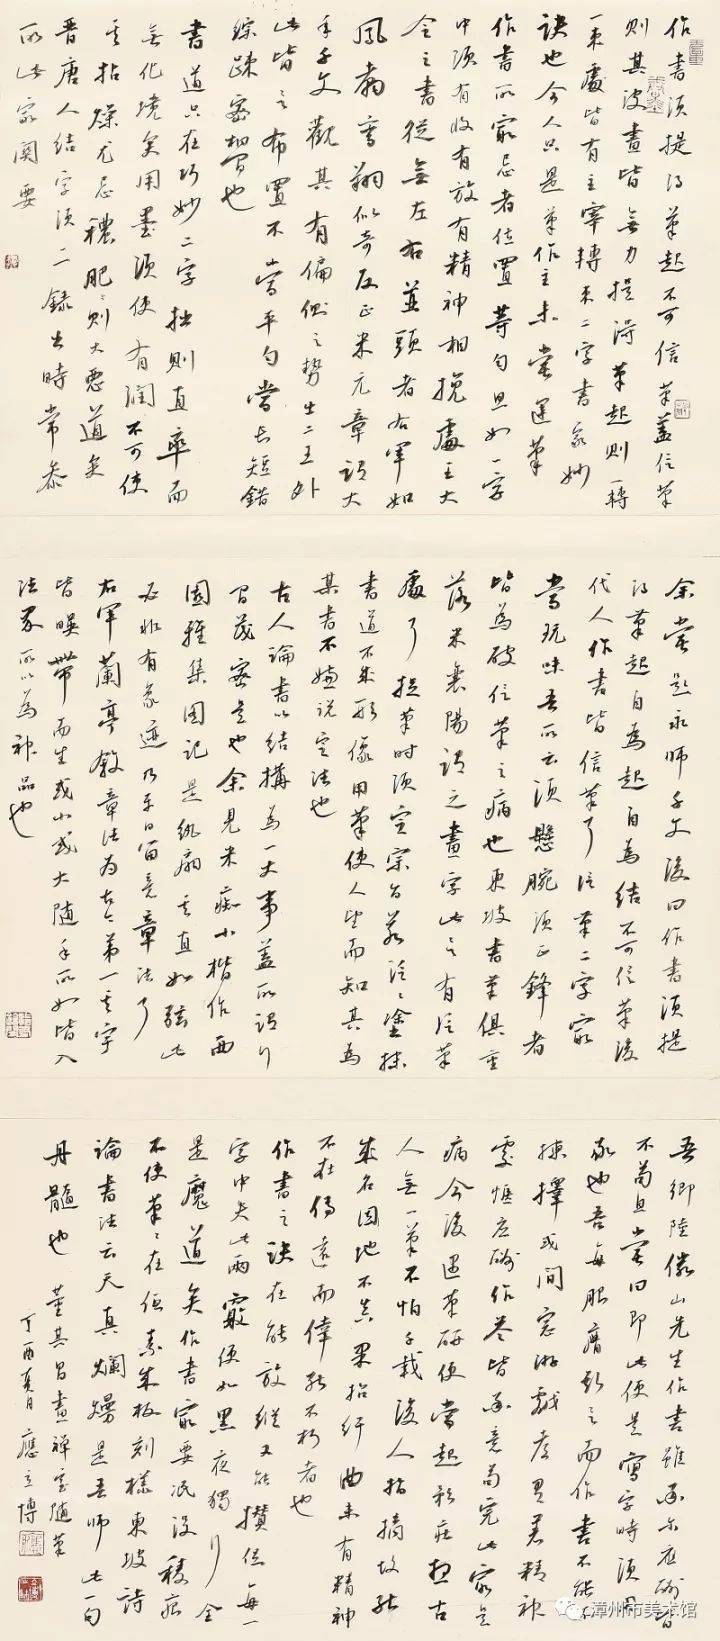 作書須提得筆起不可信筆蓋信筆
則其波畫皆無力提得筆起則一轉
一束處皆有主宰轉束二字書家妙
訣也今人只是筆作主未嘗運筆
作書所最忌者位置等勻且如一字
中須有收有放有精神相挽處王大
令之書從無左右並頭者右軍如
鳳翥鸞翔似奇反正米元章謂大
年千文觀其有偏側之勢出二王外
此皆言布置不當平勻當長短錯
綜疎密相間也
書道只在巧妙二字拙則直率而
無化境矣用墨須使有潤不可使
其枯燥尤忌穠肥肥則大惡道矣
晉唐人結字須一一錄出時常參
取此最關要
余嘗題永師千文後曰作書須提
得筆起自為起自為結不可信筆後
代人作書皆信筆耳信筆二字最
當玩味吾所云須懸腕須正鋒者
皆為破信筆之病也東坡書筆俱重
落米襄陽謂之畫字此言有信筆
處耳捉筆時須定宗旨若泛泛塗抹
書道不成形像用筆使人望而知其為
某書不嫌說定法也
古人論書以結構為一大事蓋所謂行
間茂密是也余見米癡小楷作西
園雅集圖記是紈扇其直如弦此
必非有象迹乃平日留意章法耳
右軍蘭亭敘章法為古今第一其字
皆映帶而生或小或大隨手所如皆入
法界所以為神品也
吾鄉陸儼山先生作書雖率爾應酬皆
不苟且嘗曰即此便是寫字時須用
敬也吾每服膺斯言而作書不能不
揀擇或閒窗游戲都有著精神
處惟應酬作答皆率意苟完此最是
病今後遇筆研便當起矜莊想古
人無一筆不怕千載後人指摘故能
成名因地不真果招紆曲未有精神
不在傳遠而倬能不朽者也
作書之訣在能放縱又能攢促每一
字中失此兩竅便如黑夜獨行全
是魔道矣作書最要泯沒稜痕
不使筆筆在紙素成板刻樣東坡詩
論書法云天真爛熳是吾師此一句
丹髓也 董其昌畫禪室隨筆
丁酉夏月應立博
漳州市美术馆